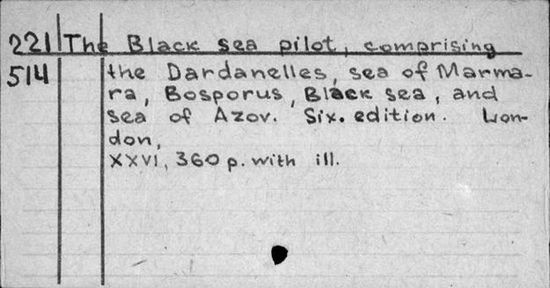 221 The Black sea pilot, comprising
514 the Dardanelles, sea of Marma-
ra, Bosporus, Black sea, and
sea of Azov. Six. edition. Lon-
don,
XXVI, 360 p. with ill.